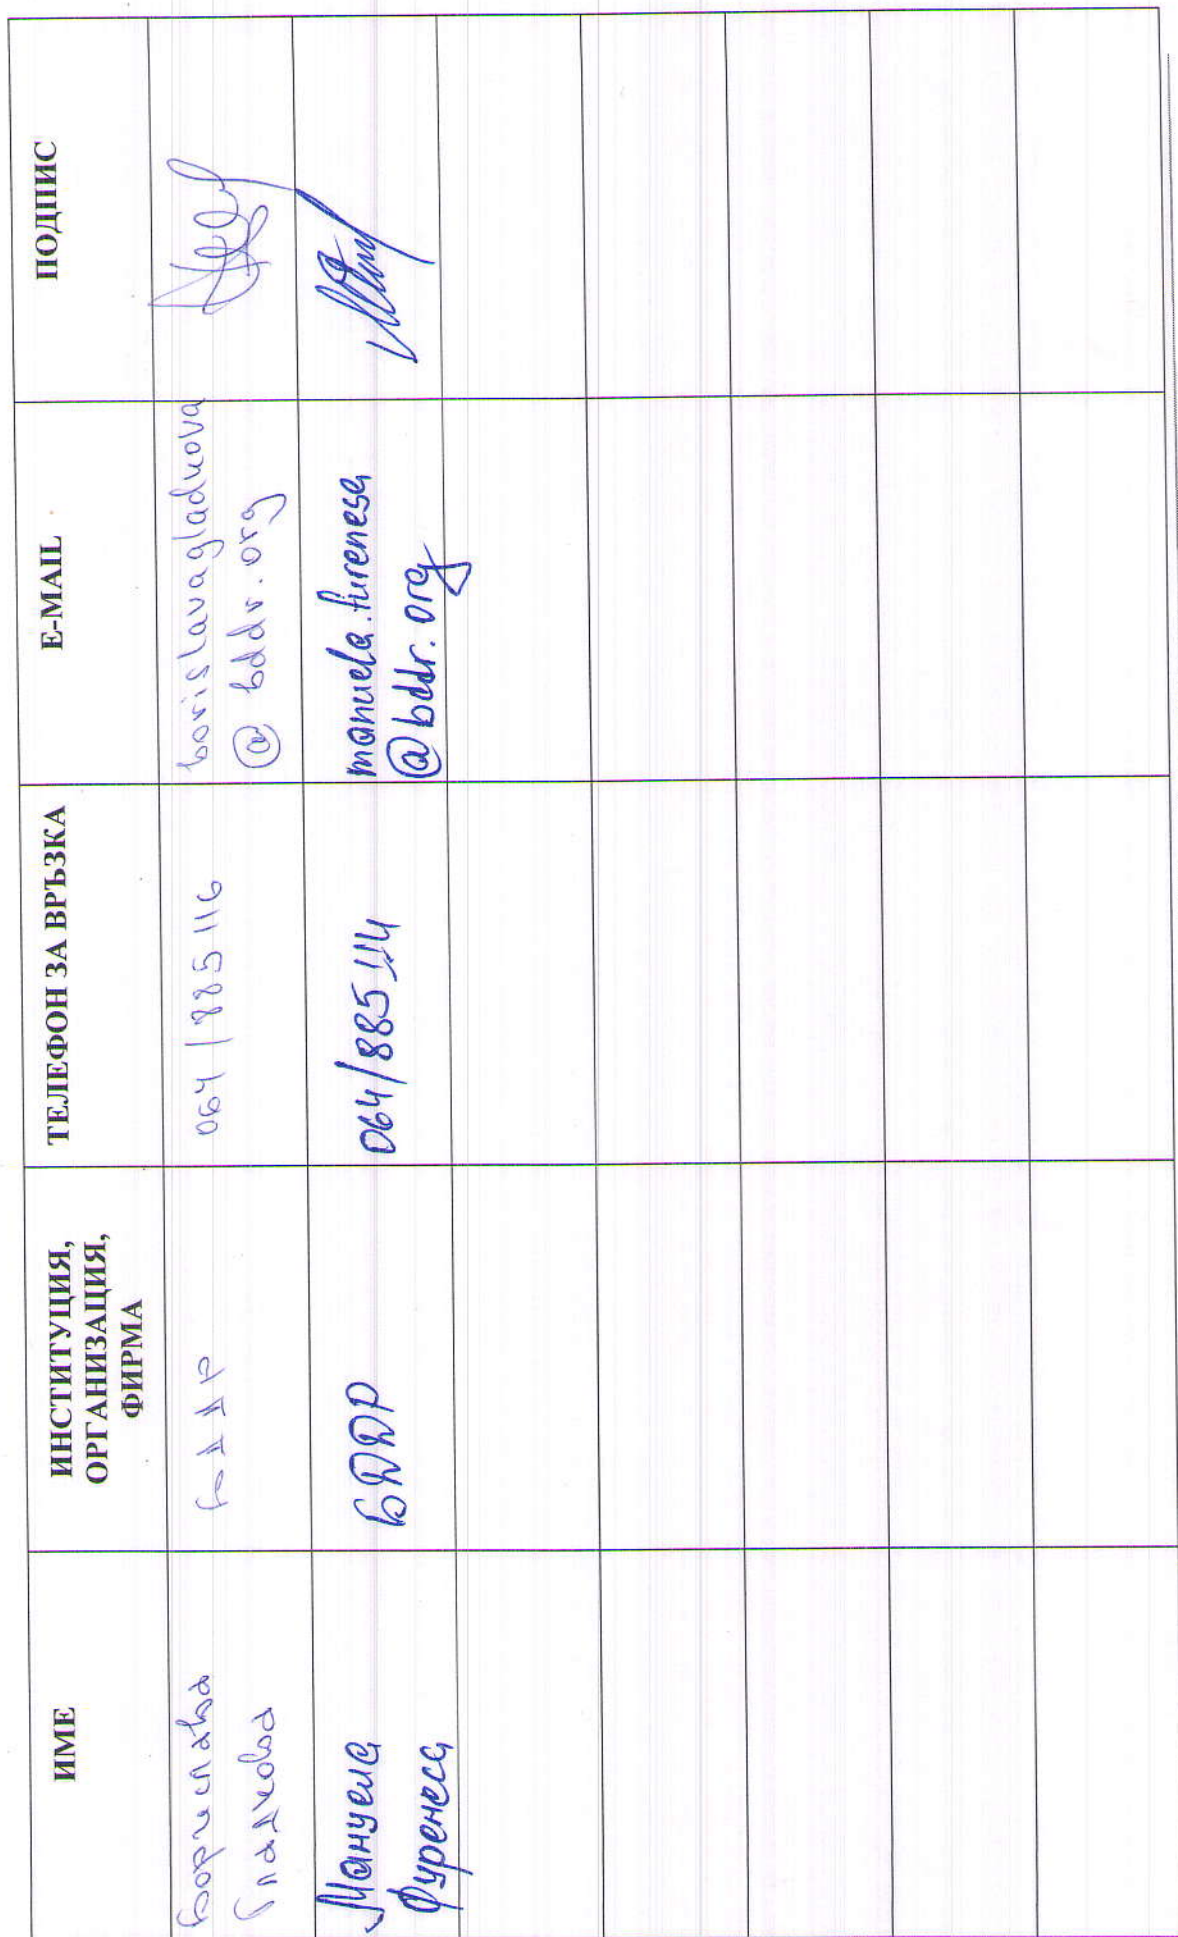 ИМЕ
ИНСТИТУЦИЯ,
ОРГАНИЗАЦИЯ,
ФИРМА
ТЕЛЕФОН ЗА ВРЪЗКА
E-MAIL
ПОДПИС
Борислава
Гладкова
БДДР
064/885116
borislavagladkova
@bddr.org
Мануела
Фуренеса
БДДР
064/885114
manuela.furenesa
@bddr.org